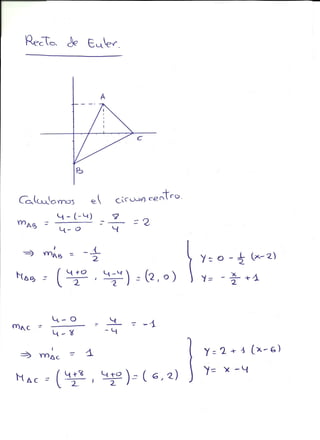 Recta de Euler.
A
C
B
Calculamos el circuncentro.
m_AB = (4-(-4))/(4-0) = 8/4 = 2
⇒ m'_AB = -1/2
M_AB = ((4+0)/2, (4-4)/2) = (2, 0)
y = 0 - 1/2 (x-2)
y = -x/2 + 1
m_AC = (4-0)/(4-8) = 4/-4 = -1
⇒ m'_AC = 1
M_AC = ((4+8)/2, (4+0)/2) = (6, 2)
y = 2 + 1 (x-6)
y = x - 4